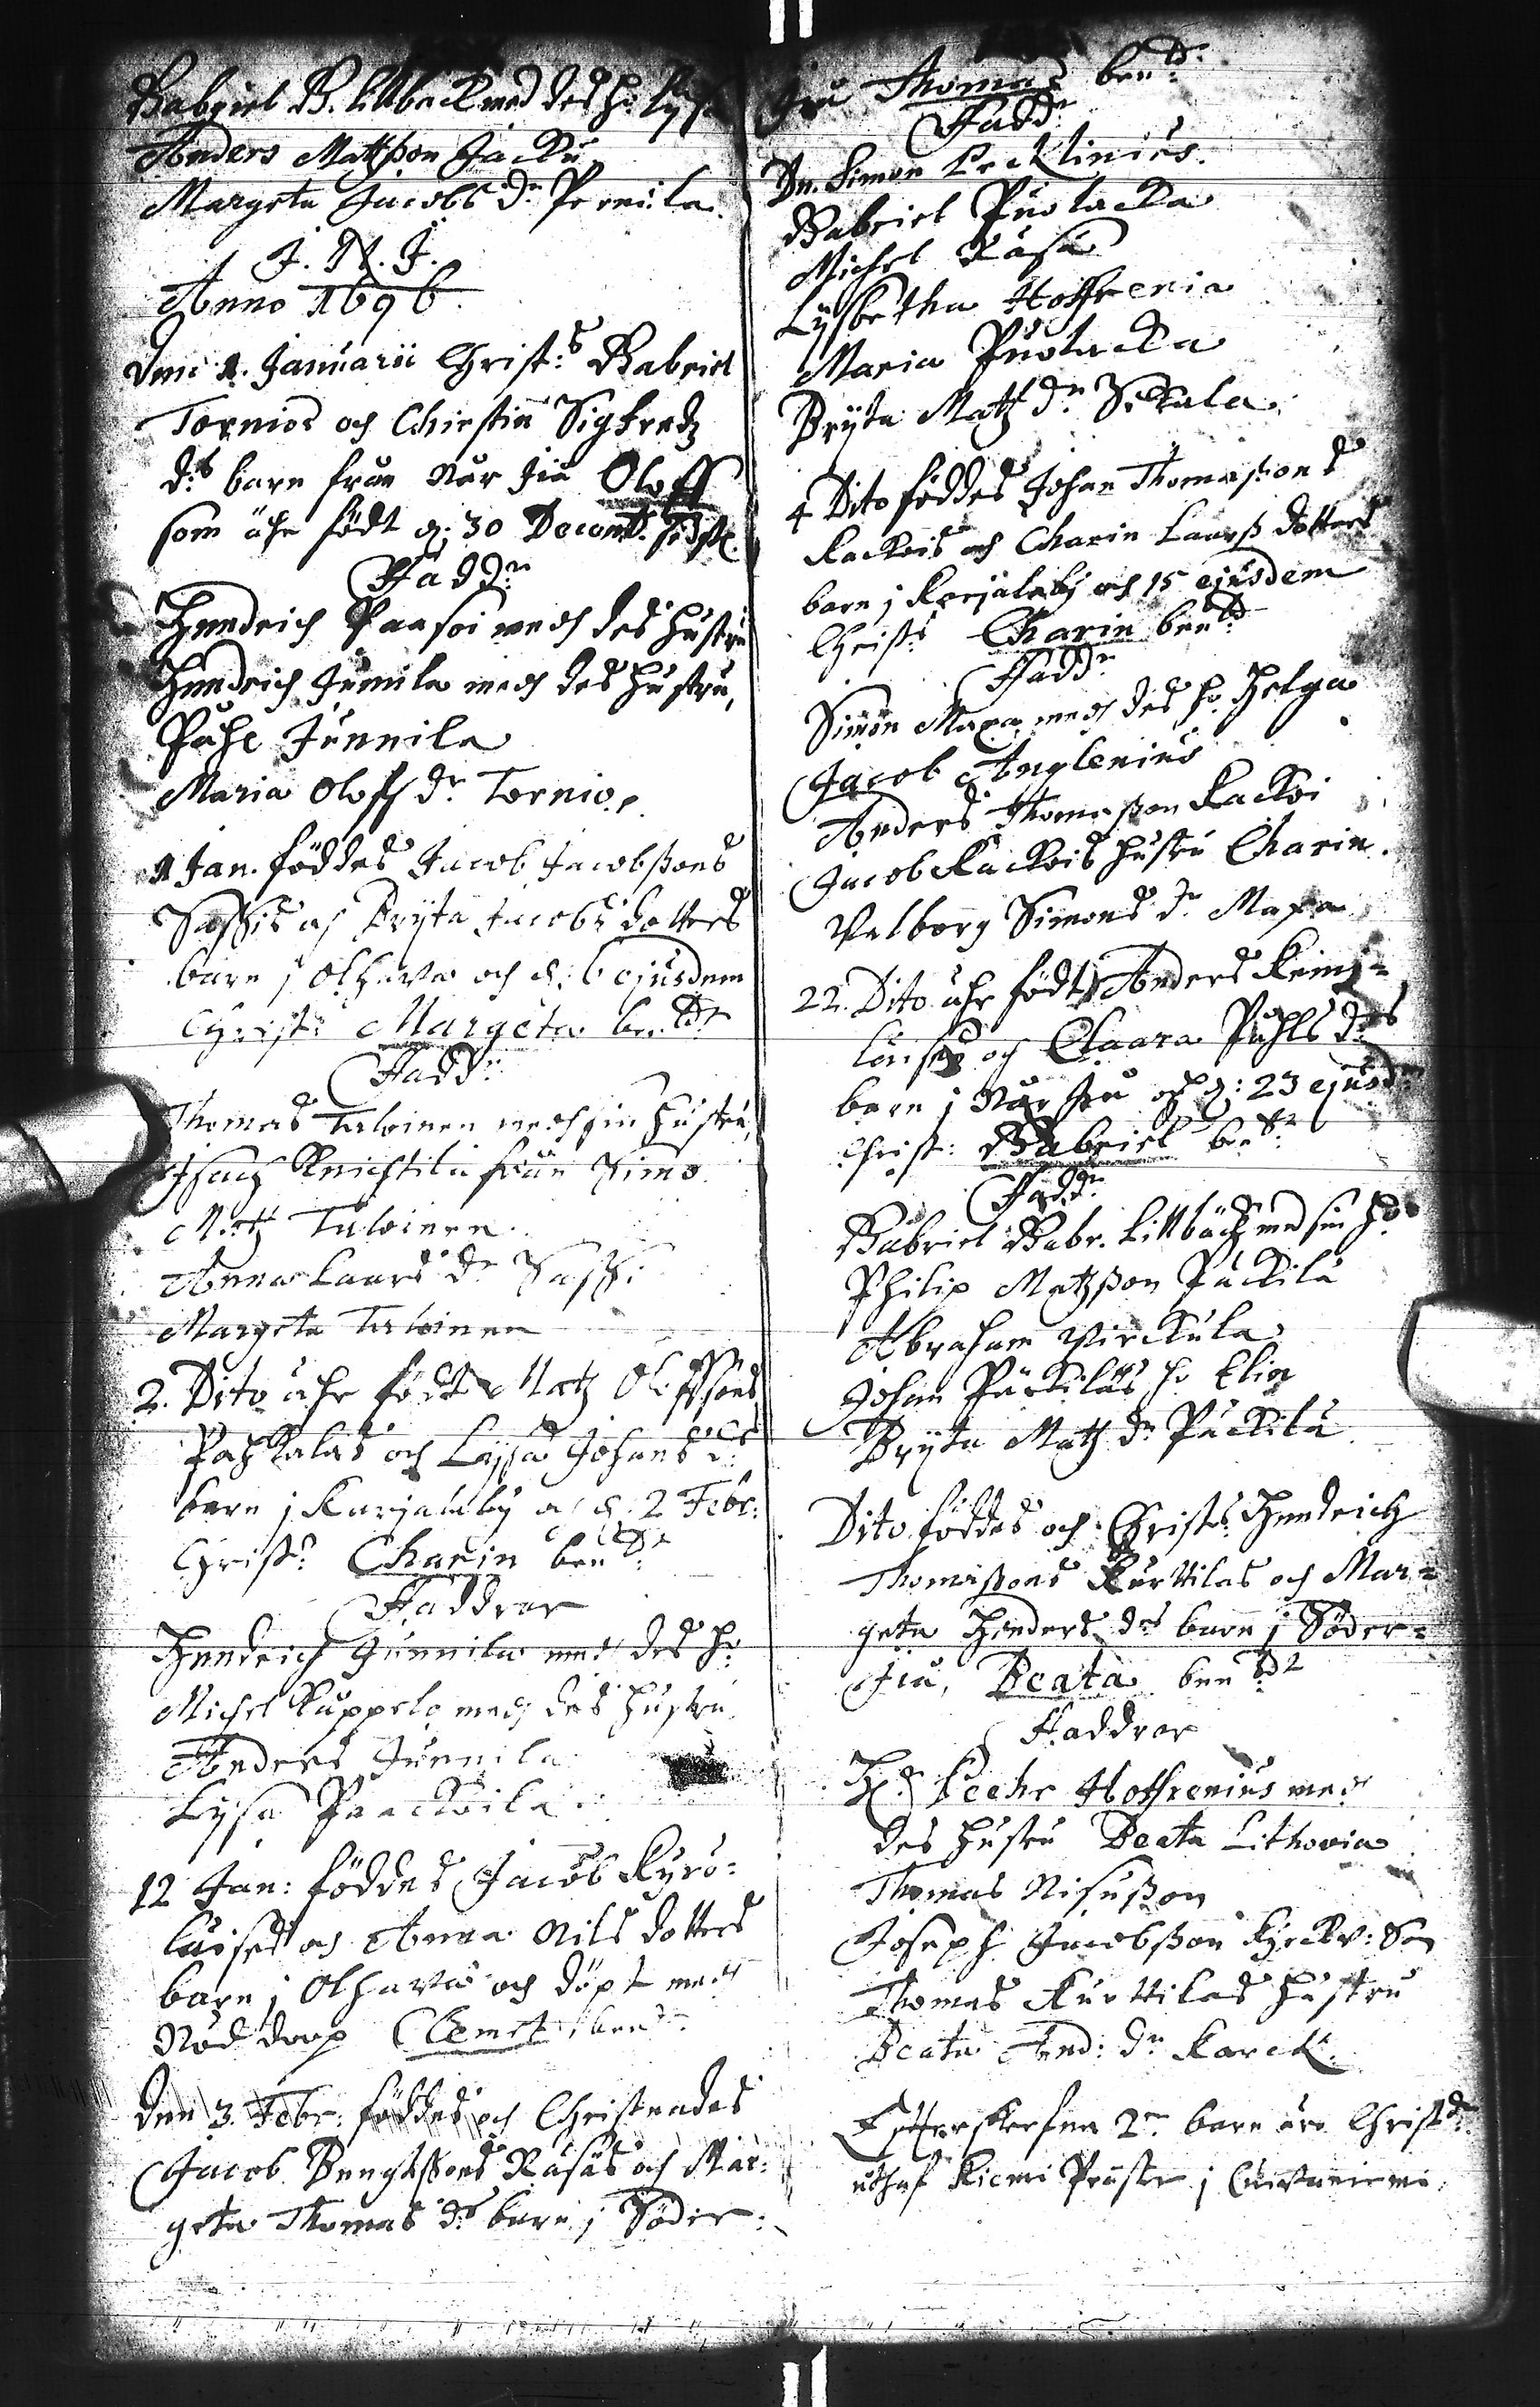 Gabriel G. Littback med des h: Lysa
Anders Mattsson Jacku
Margeta Jacobs dr Pernula
J. N. J.
Anno 1696.
Den 1. Januarii Christ:s Gabriel
Tornios och Christin Sigfredz
d:s barn från Nor Jiå Oloff
som ähr födt d: 30 Decemb.
Fadd:r
Hendrich Paasoi medh des hustru
Hendrich Junnila medh des hustru,
Påhl Junnila
Maria Oloffs dr Tornio.
1 Jan. föddes Jacob Jacobssons
Sassis och Bryta Jacobs dotters
barn j Olhava och d. 6 ejusdem
Christ:s Margeta be:d
Fadd:r
Thomas Talvinen medh sin hustru,
Isach Knichtila från Simo
Matz Talvinen.
Anna Laars dr Sassi
Margeta Talvinen
2. Dito ähr födt Matz Oloffssons
Paskalas och Lyssa Johans d:s
barn j Karjalaby och d. 2 Febr:
Christ:s Charin ben:d
Faddrar
Hendrich Junnila medh des h:
Michel Kuppelo medh des hustru
Anders Junnila
Lysa Paackoila.
12 Jan: föddes Jacob Kyrö=
läises och Anna Nils dotters
barn j Olhava och döpt medh
Nöd doop Clemet ben:d
Den 3. Febr: föddes och Christnades
Jacob Bengtssons Räsäs och Mar=
geta Thomas d:s barn j Söder=
Jiå Thomas ben:d
Fadd:r
Dn. Simon Pecklinius.
Gabriel Puolacka
Michel Räsä
Lysbetha Hoffrenia
Maria Puolacka
Bryta Matz dr Sickala
4 Dito föddes Johan Thomassons
Kackois och Charin Laarss dotters
barn j Karjalaby och 15 ejusdem
Christ:s Charin ben:d
Fadd:r
Simon Maxa medh des h: Helga
Jacob Anglenius
Anders Thomasson Kackoi
Jacob Kackois hustru Charin.
Valborg Simons dr Maxa
22. Dito ähr födt Anders Keins=
och Claara Påhls d:s
barn j Nor Jiå och d: 23 ejusd:
Christ: Gabriel be:d
Fadd:r
Gabriel Gabr. Littbäck med sin h:
Philip Matzsson Päckilä
Abraham Virckula
Johan Päckiläs h: Elin
Bryta Matz dr Päckilä
Dito föddes och Christ:s Hendrich
Thomassons Kurttilas och Mar=
geta Hinders d:s barn j Söder=
Jiå, Beata ben:d
Faddrar
H:r Peehr Hoffrenius medh
des hustru Beata Lithovia
Thomas Nisusson
Joseph Jacobsson Kyrckv:
Thomas Kurttilas hustru
Beata And: dr Karck
Effterskrefne 2:ne barn äro Christ:d
uthaf Kiemi Präster j Cuivaniemi